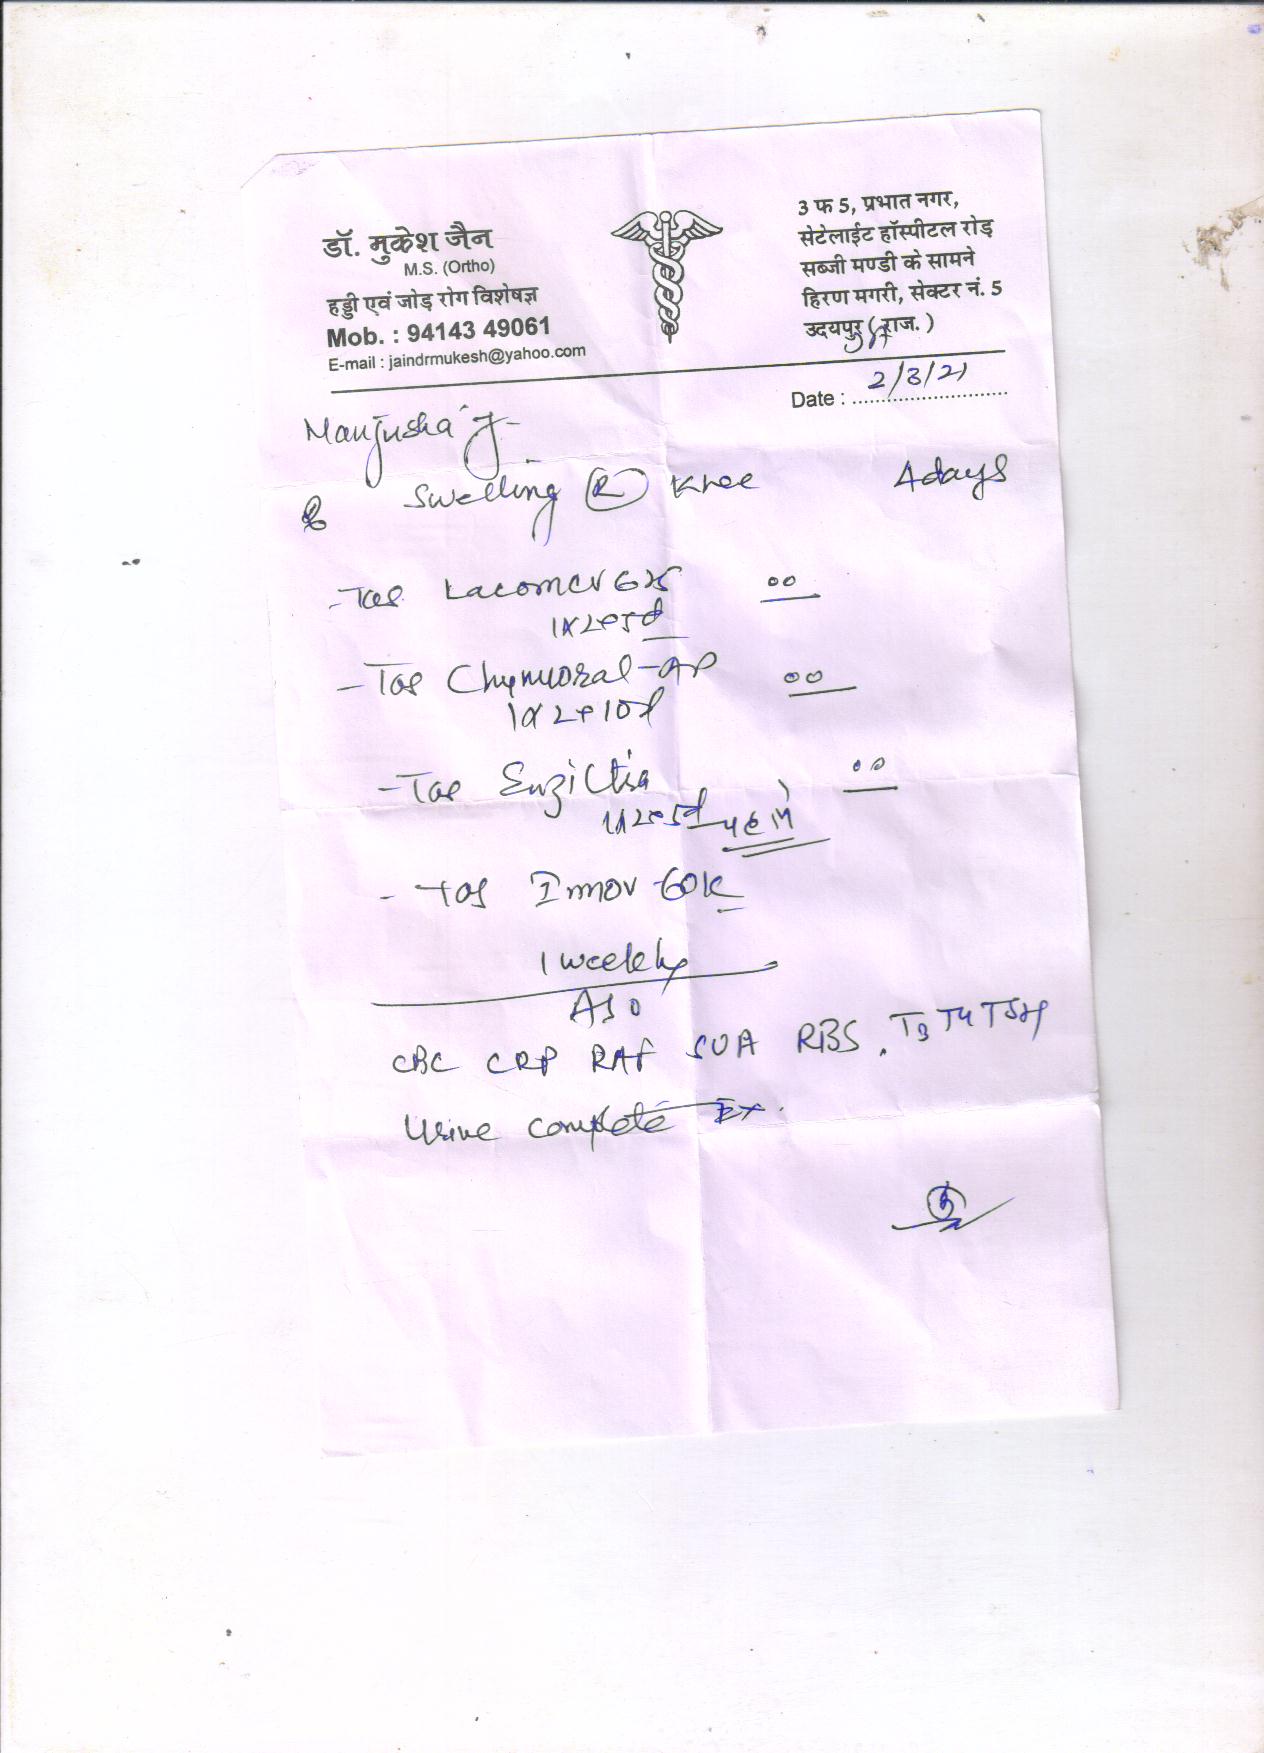 डॉ. मुकेश जैन
M.S. (Ortho)
हड्डी एवं जोड़ रोग विशेषज्ञ
Mob. : 94143 49061
E-mail : jaindrmukesh@yahoo.com
3 फ 5, प्रभात नगर,
सेटेलाईट हॉस्पीटल रोड़
सब्जी मण्डी के सामने
हिरण मगरी, सेक्टर नं. 5
उदयपुर (राज.)
Date : 2/3/21
Manjusha J-
Swelling (R) Knee 4days
- Tab 625
1x2x5d
- Tab Chymoral-AP
1x2x10d
- Tab
1x2x5d
- Tab 60K
1 weekly
ASO
CBC CRP RAF SUA RBS. T3 T4 TSH
Urine complete Ex.